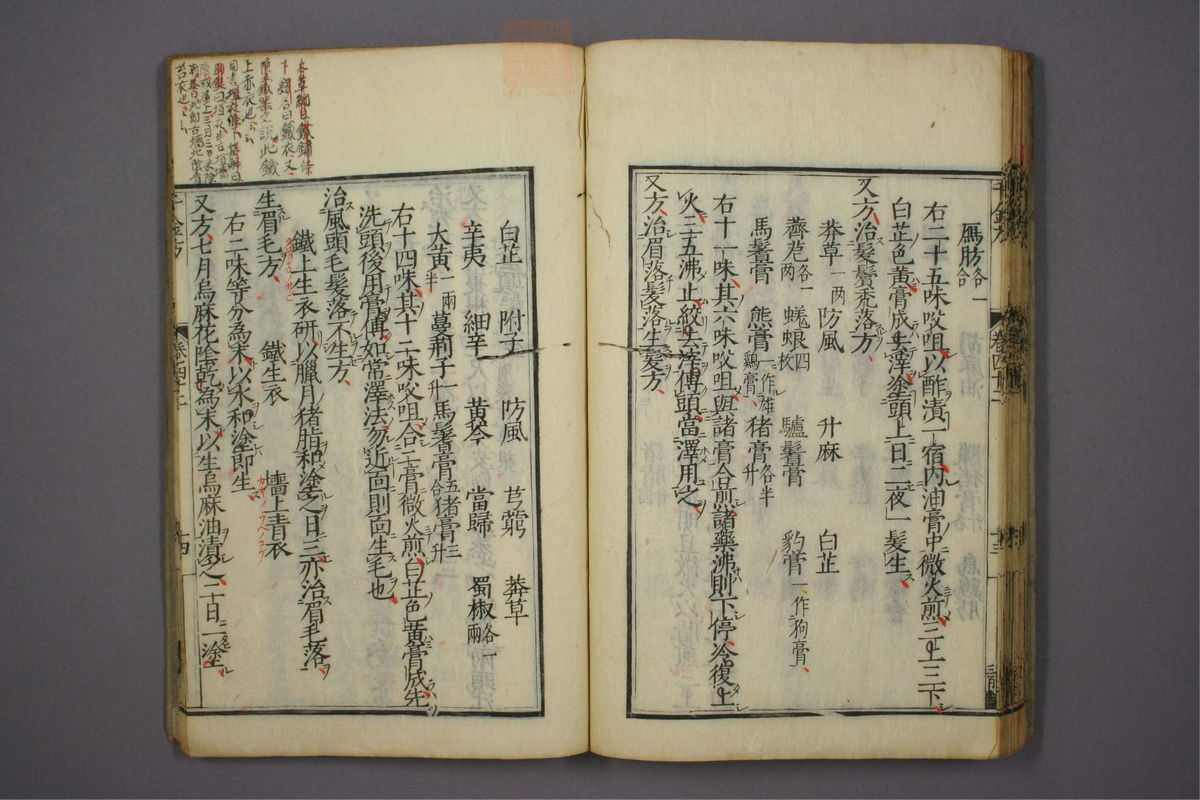 鴈肪各一合
右二十五味㕮咀以酢漬一宿內油膏中微火煎三上三下
白芷色黃膏成去滓塗頭上日二夜一髮生
又方治髮鬢禿落方
莽草一兩 防風 升麻 白芷
薺苨各一兩 蜣蜋四枚 驢鬐膏 豹膏一作狗膏
馬鬐膏 熊膏一作雄鷄膏 猪膏各半升
右十一味其六味㕮咀與諸膏合煎諸藥沸則下停冷復上
火三五沸止絞去滓傅頭當澤用之
又方治眉落髮落生髮方
白芷 附子 防風 芎藭 莽草
辛夷 細辛 黃芩 當歸 蜀椒各一兩
大黃一兩半 蔓荊子一升 馬鬐膏五合 猪膏三升
右十四味其十二味㕮咀合二膏微火煎白芷色黃膏成先
洗頭後用膏傅如常澤法勿近面則面生毛也
治風頭毛髮落不生方
鐵上生衣研以臘月猪脂和塗之日三亦治眉毛落
生眉毛方
鐵生衣 墻上青衣
右二味等分為末以水和塗即生
又方七月烏麻花陰乾為末以生烏麻油漬之二十日一塗
千金方 卷四十二 十四